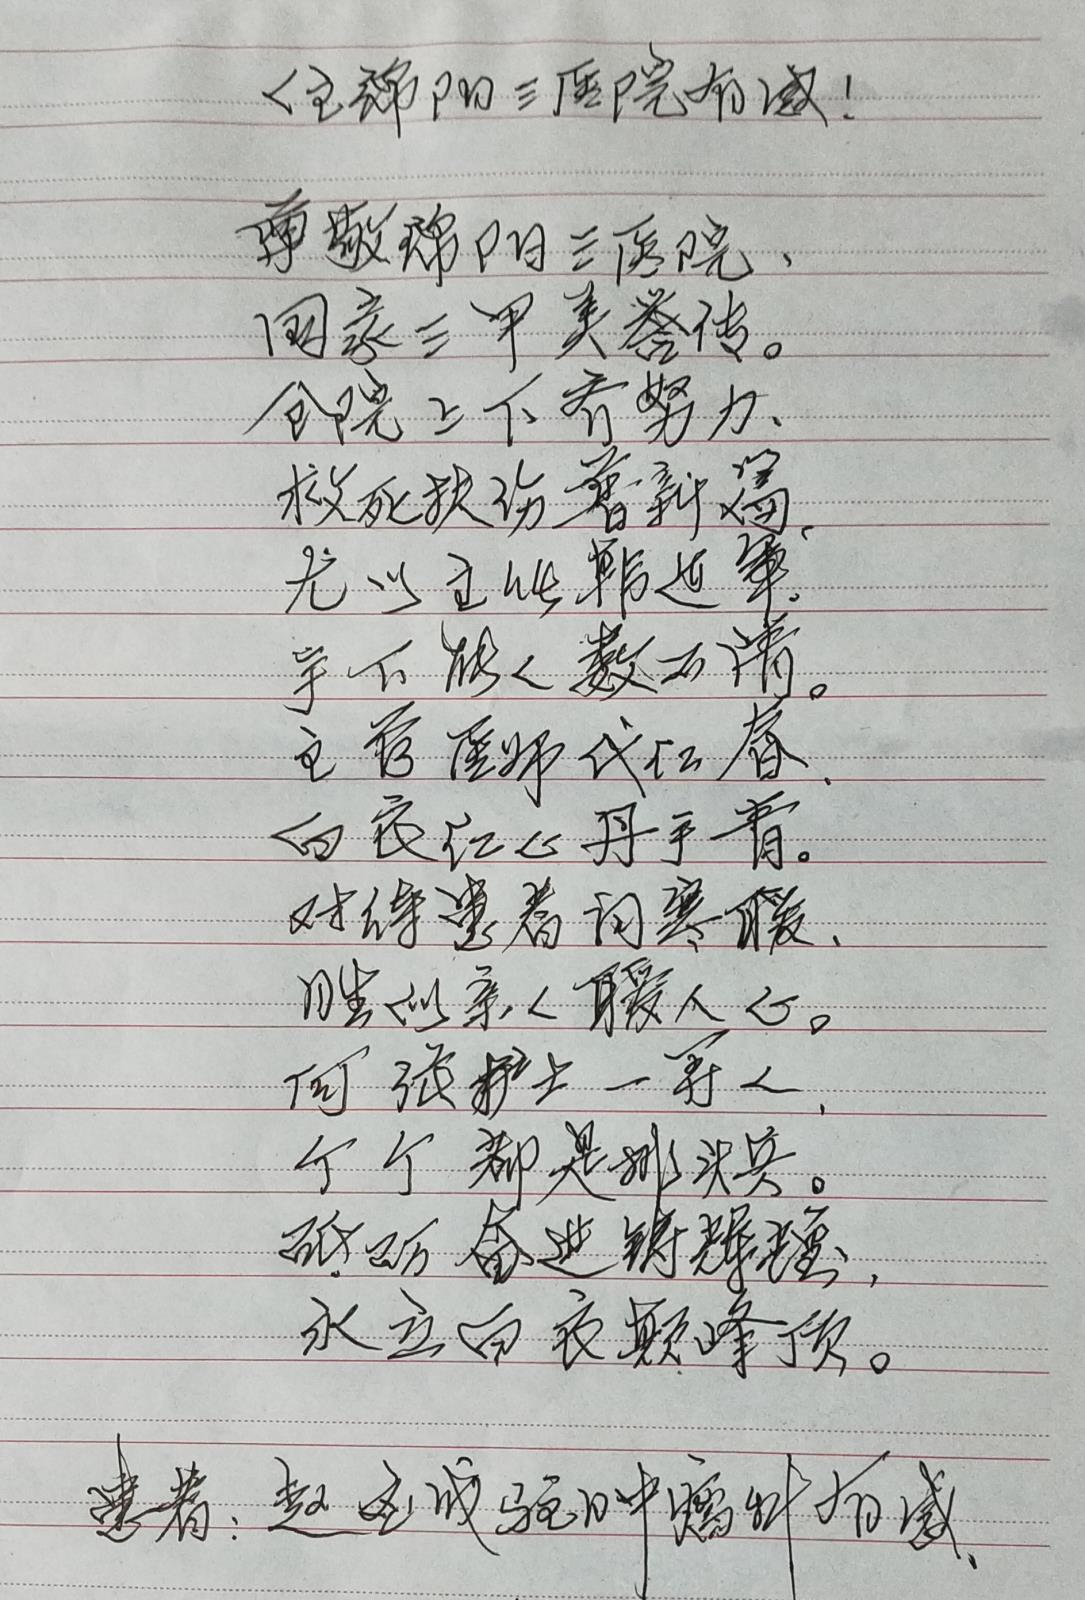 住绵阳三医院有感！
尊敬绵阳三医院、
国家三甲美誉传。
全院上下齐努力、
救死扶伤普新篇、
尤以主任韩延军、
手下能人数不清。
主管医师代仁春、
白衣仁心丹手青。
对待患者问寒暖、
胜似亲人暖人心。
何张护士一行人、
个个都是排头兵。
砥砺奋进铸辉煌、
永立白衣巅峰顶。
患者：赵全成驻肿瘤科有感、